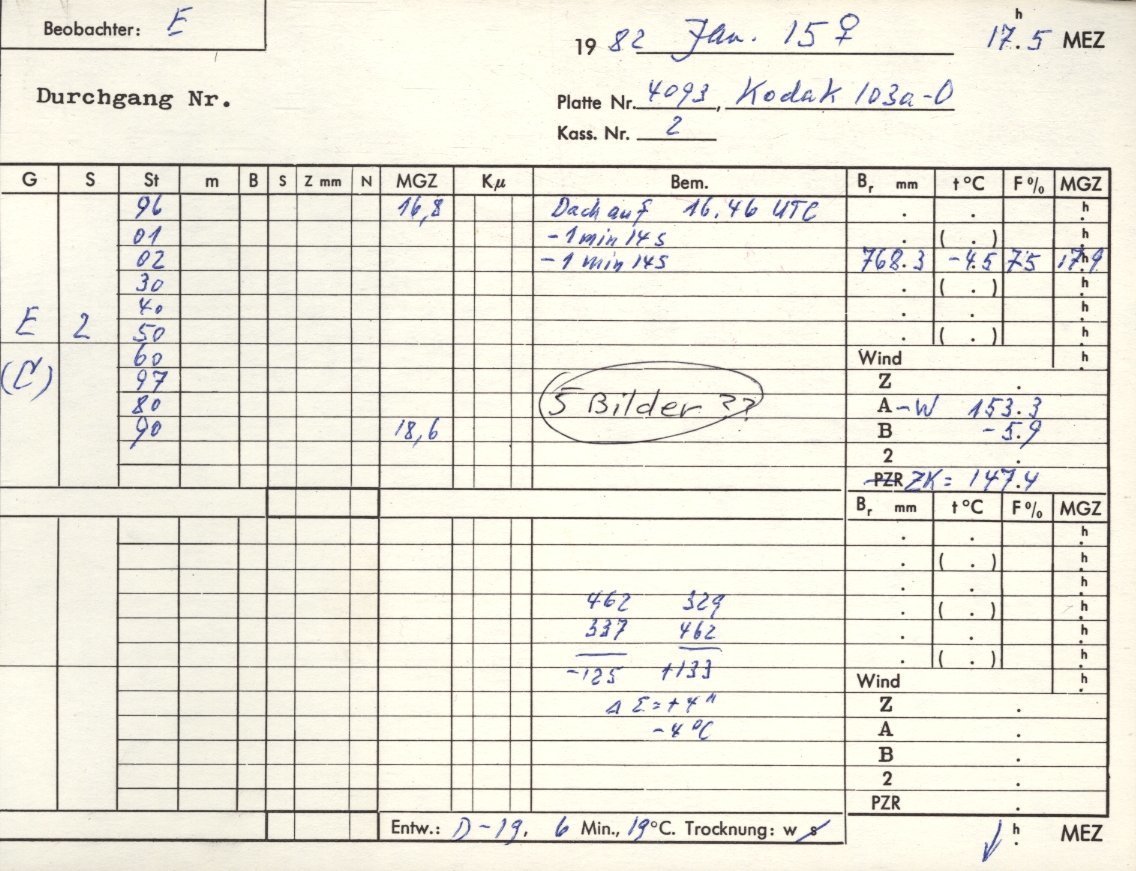 Beobachter: E
19 82 Jan. 15 ♀ 17.5 h MEZ
Durchgang Nr.
Platte Nr. 4093, Kodak 103a-O
Kass. Nr. 2
G S St m B S Z mm N MGZ Kμ Bem. Br mm t °C F % MGZ
96 16,8 Dach auf 16.46 UTC . . h
01 -1 min 14 s . ( . ) h
02 -1 min 14 s 768.3 -4.5 75 17.9 h
30 . ( . ) h
40 . . h
E 2 50 . ( . ) h
60 Wind h
(C) 97 Z .
80 5 Bilder ?? A-W 153.3
90 18,6 B -5.9
2 .
PZR ZK = 147.4
Br mm t °C F % MGZ
. . h
. ( . ) h
. . h
462 329 . ( . ) h
337 462 . . h
-125 +133 . ( . ) h
Wind h
Δ Σ = + 4" Z .
-4 °C A .
B .
2 .
PZR .
Entw.: D-19, 6 Min., 19 °C. Trocknung: w s h MEZ